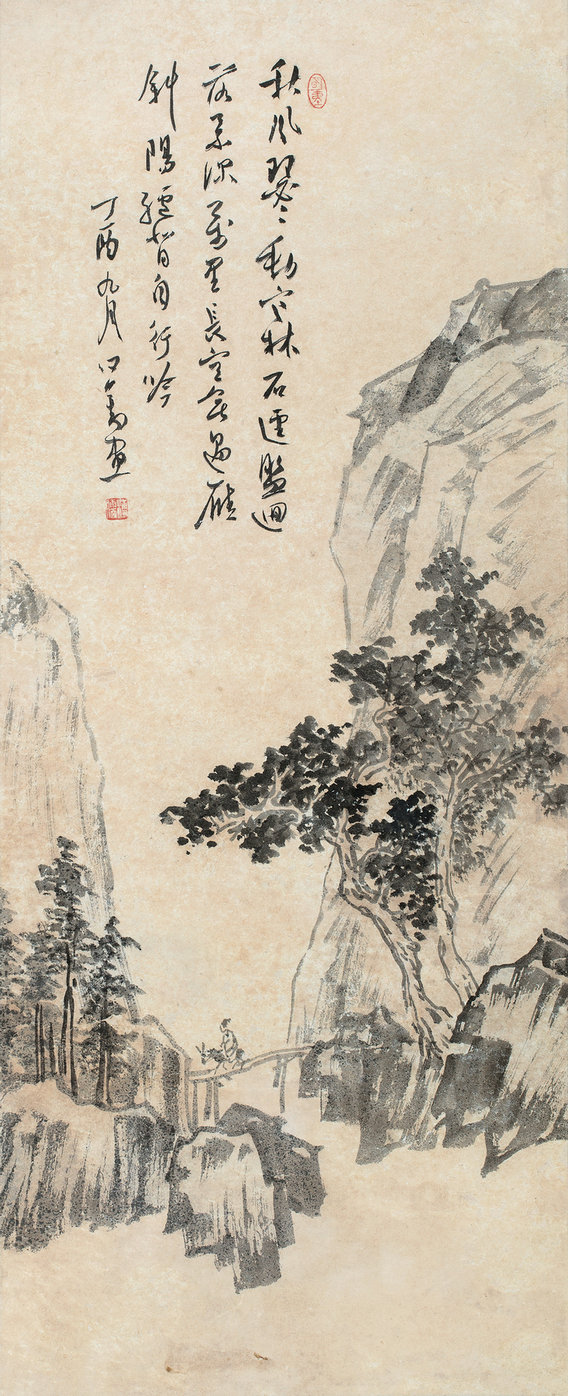 秋風瑟瑟動寒林石逕盤迴
落葉深萬里長空無過雁
斜陽驢背自行吟
丁酉九月心畬畫